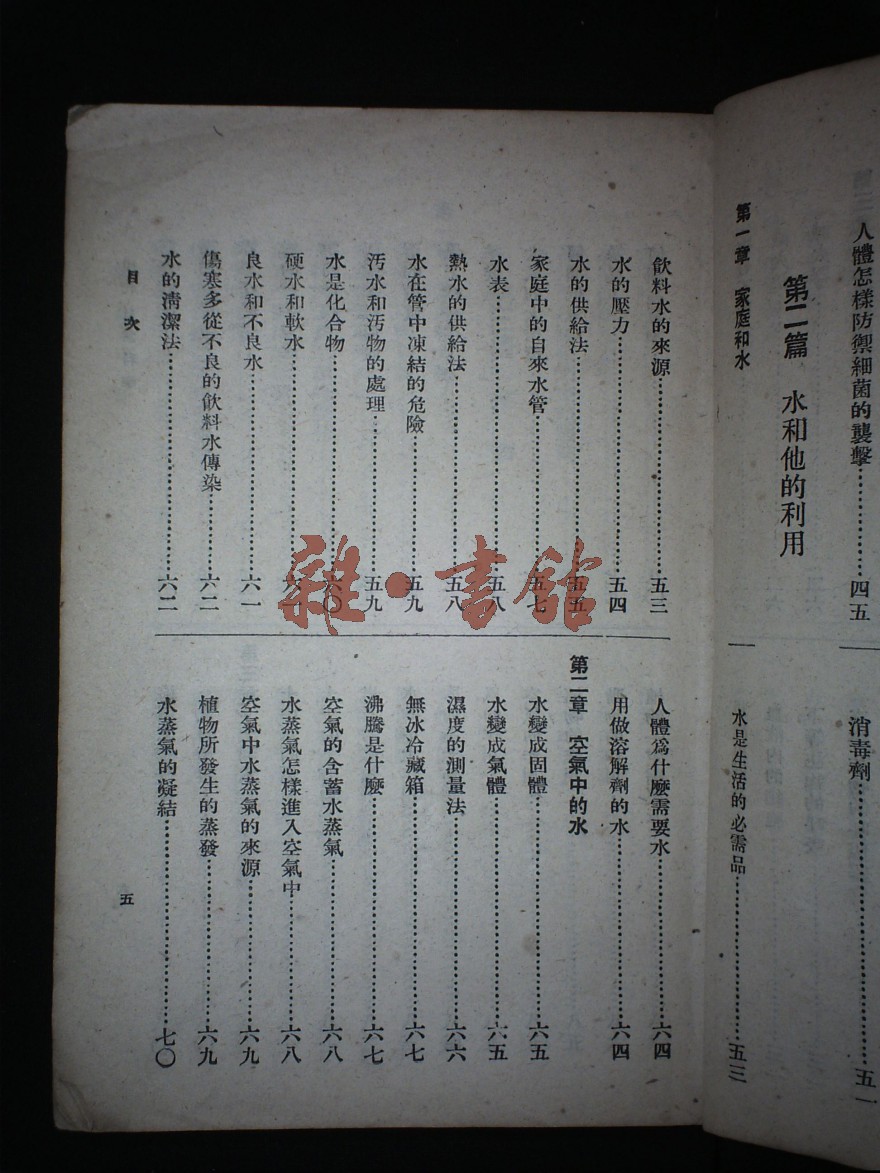 人體怎樣防禦細菌的襲擊………四五
消毒劑………五一
第二篇 水和他的利用
第一章 家庭和水
水是生活的必需品………五三
飲料水的來源………五三
水的壓力………五四
水的供給法………五五
家庭中的自來水管………五七
水表………五八
熱水的供給法………五八
水在管中凍結的危險………五九
汚水和汚物的處理………五九
水是化合物………六〇
硬水和軟水………六一
良水和不良水………六一
傷寒多從不良的飲料水傳染………六二
水的清潔法………六二
人體爲什麼需要水………六四
用做溶解劑的水………六四
第二章 空氣中的水
水變成固體………六五
水變成氣體………六五
濕度的測量法………六六
無冰冷藏箱………六七
沸騰是什麼………六七
空氣的含蓄水蒸氣………六八
水蒸氣怎樣進入空氣中………六八
空氣中水蒸氣的來源………六九
植物所發生的蒸發………六九
水蒸氣的凝結………七〇
目次
五
雜·書館